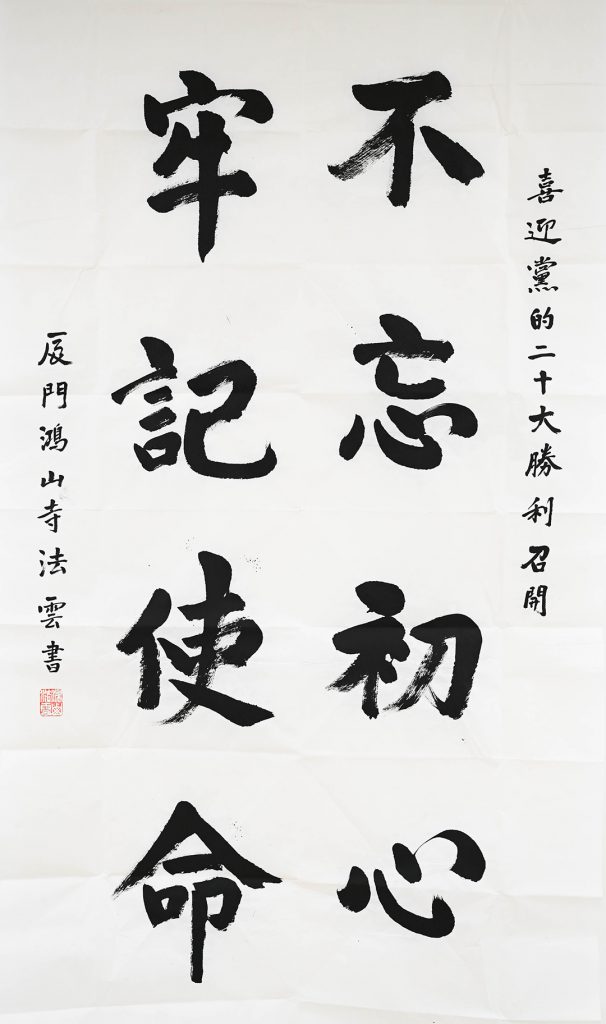 喜迎黨的二十大勝利召開
不忘初心
牢記使命
厦門鴻山寺法雲書